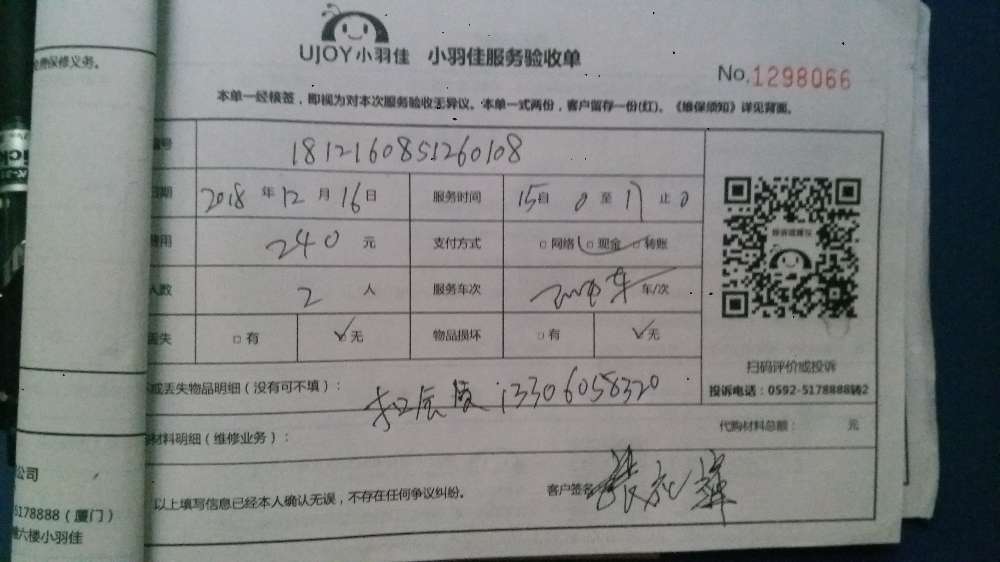 免费保修义务。
UJOY小羽佳 小羽佳服务验收单
No.1298066
本单一经核签，即视为对本次服务验收无异议。本单一式两份，客户留存一份(红)。《维保须知》详见背面。
号 1812160851260108
日期 2018年12月16日 服务时间 15自0至17止0
费用 240元 支付方式 □网络 □现金 □转账
人数 2人 服务车次 车/次
丢失 □有 □无 物品损坏 □有 □无
或丢失物品明细（没有可不填）： 13306058320
扫码评价或投诉
投诉电话：0592-5178888转2
材料明细（维修业务）： 代购材料总额： 元
以上填写信息已经本人确认无误，不存在任何争议纠纷。 客户签名
公司
5178888（厦门）
六楼小羽佳